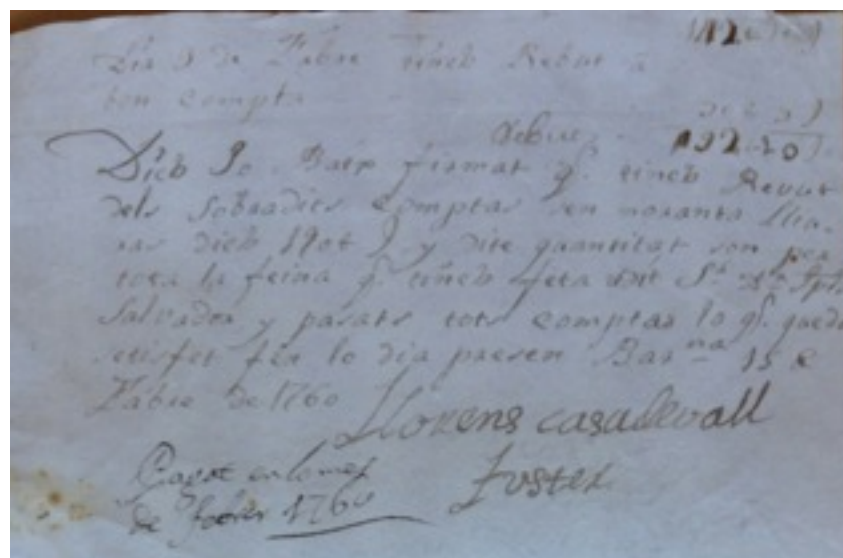 Dia 9 de Fabre tinch Rebut a
bon compta
Dich Jo Baix firmat q. tinch Revut
dels Sobradits Comptas sen noranta lliu-
ras dich 190 y dite quantitat son per
tota la feina q. tinch feta dit Sr. Dn.
Salvador y parats tots comptas lo q. queda
setisfet fin lo dia presen Barna 15 
Fabre de 1760
Llorens casadevall
Fuster
Pagat en lo mes
de febrer 1760